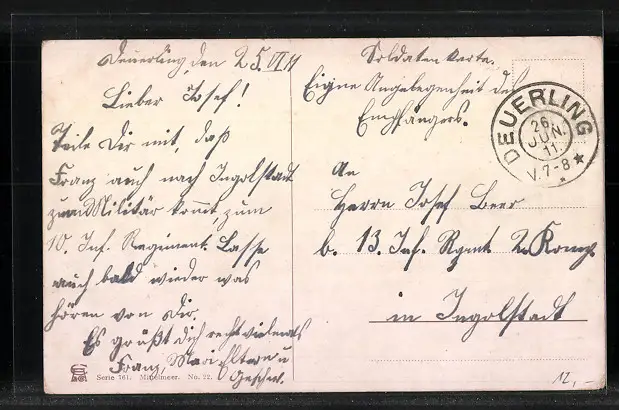 Deuerling, den 25.VI 11
Lieber Josef!
Teile Dir mit, daß
Franz auch nach Ingolstadt
zum Militär kommt, zum
10. Inf. Regiment. Lasse
auch bald wieder was
hören von Dir.
Es grüßt Dich recht vielmals
Franz, Eltern u
Geschw.
Serie 161. Mittelmeer. No. 22.
Soldatenkarte.
Eigne Angelegenheit des
Empfängers.
DEUERLING
26.
JUN.
11.
V.7-8
An
Herrn Josef Beer
b. 13. Inf. Rgmt. 2. Komp.
in Ingolstadt
12,-